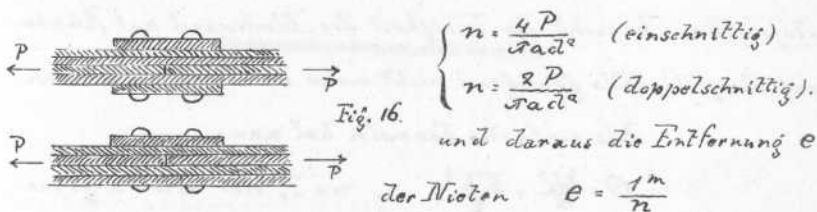 P P
Fig. 16.
P P
n = 4P / πad² (einschnittig)
n = 2P / πad² (doppelschnittig).
und daraus die Entfernung e
der Nieten e = 1ᵐ / n